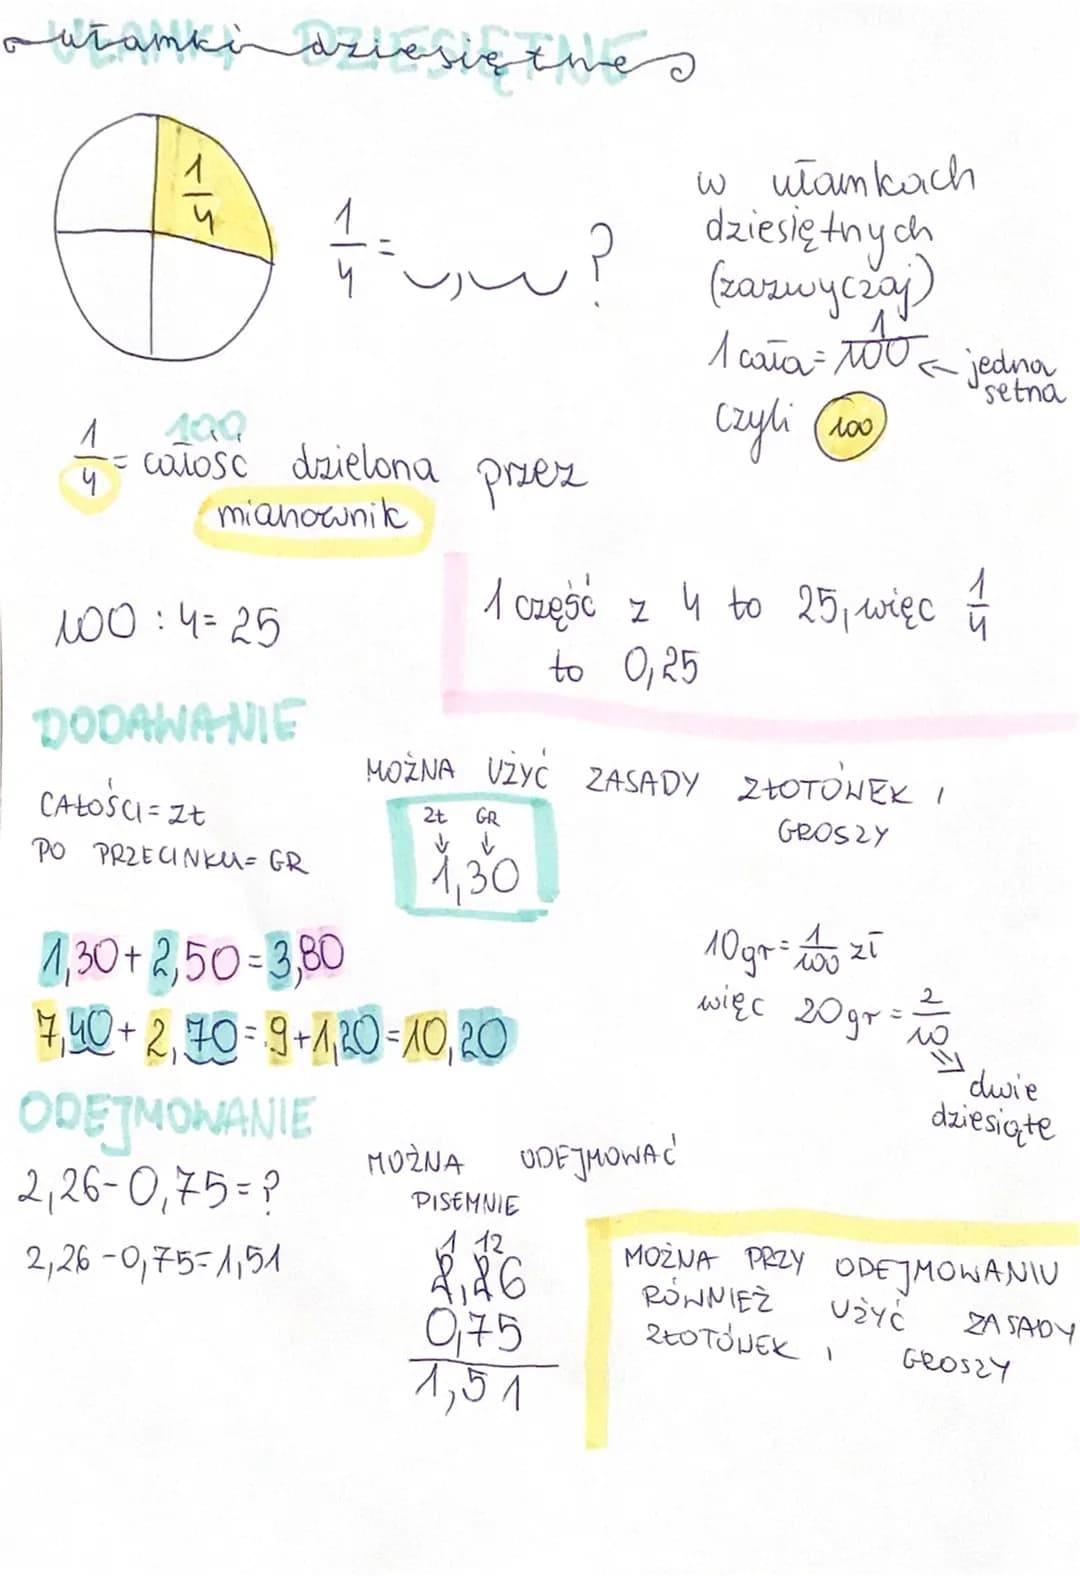 ułamki dziesiętne
UŁAMKI DZIESIĘTNE
1/4
1/4 = _,_ ?
w ułamkach
dziesiętnych
(zazwyczaj)
1 cała = 1/100 ← jedna setna
czyli 100
100
1/4 = całość dzielona przez
mianownik
100 : 4 = 25
1 część z 4 to 25, więc 1/4
to 0,25
DODAWANIE
MOŻNA UŻYĆ ZASADY ZŁOTÓWEK I
GROSZY
CAŁOŚCI = Zł
PO PRZECINKU = GR
Zł GR
↓ ↓
1,30
1,30 + 2,50 = 3,80
7,40 + 2,70 = 9 + 1,20 = 10,20
10gr = 1/100 zł
więc 20gr = 2/10
dwie
dziesiąte
ODEJMOWANIE
2,26 - 0,75 = ?
2,26 - 0,75 = 1,51
MOŻNA ODEJMOWAĆ
PISEMNIE
1 12
2,26
0,75
1,51
MOŻNA PRZY ODEJMOWANIU
RÓWNIEŻ UŻYĆ ZASADY
ZŁOTÓWEK I GROSZY